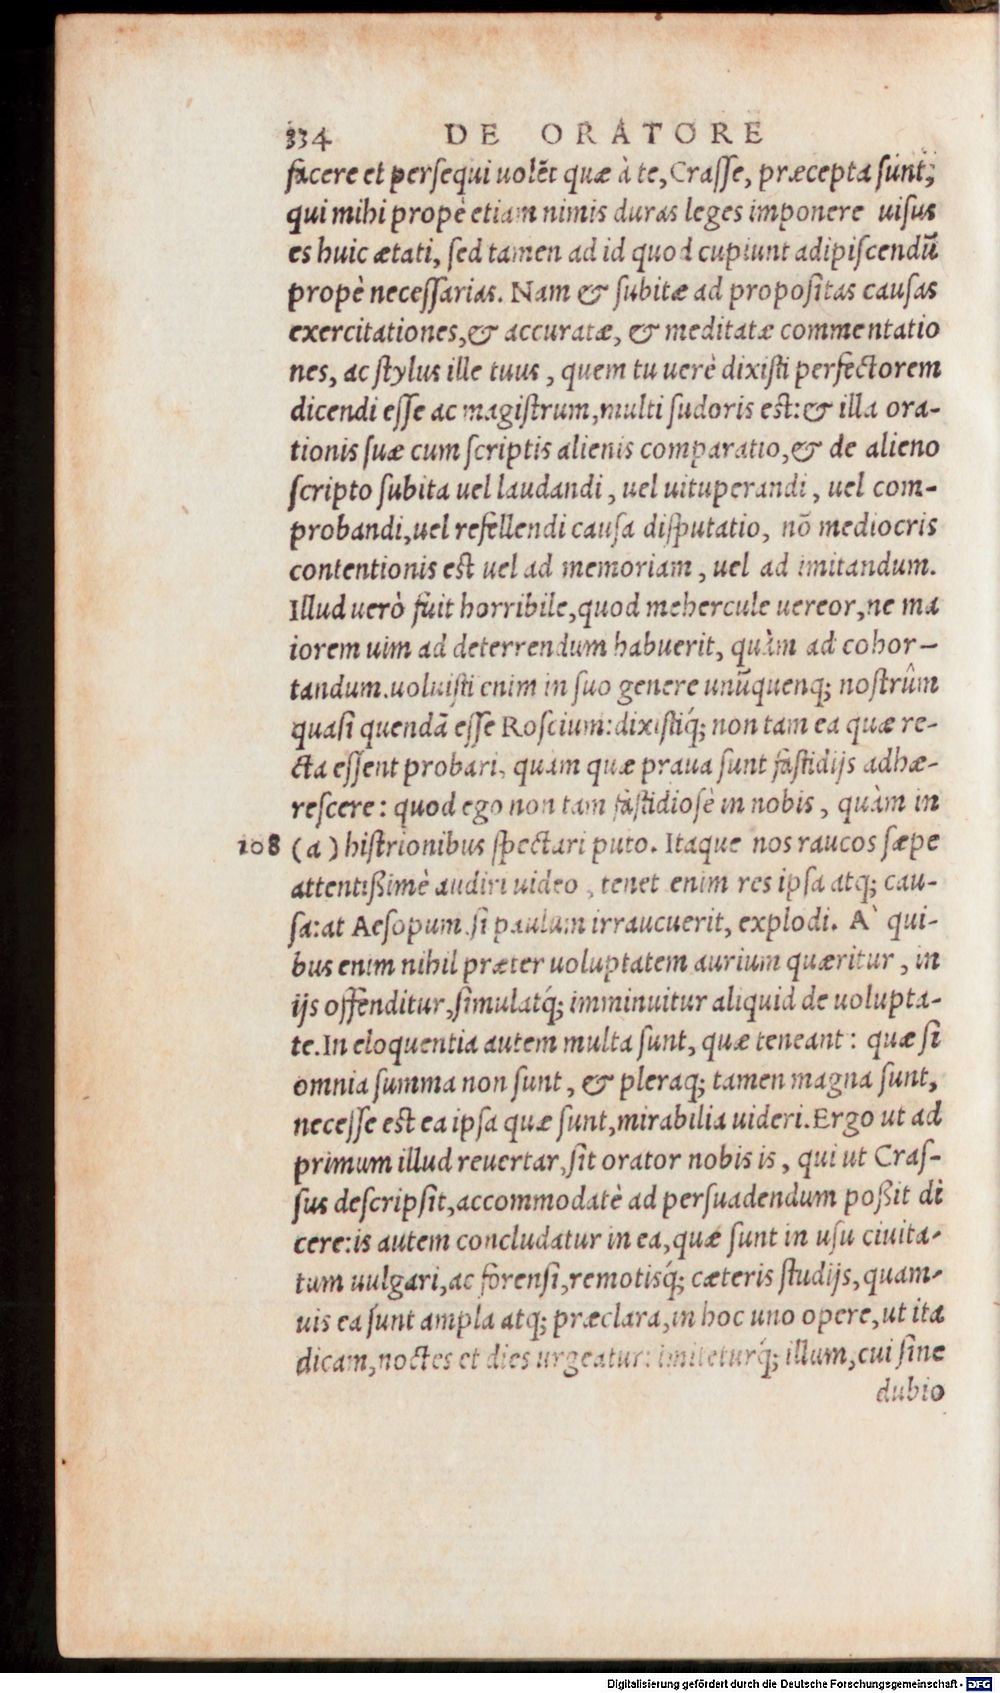 334 DE ORATORE
facere et persequi uolẽt quæ à te, Crasse, præcepta sunt;
qui mihi propè etiam nimis duras leges imponere uisus
es huic ætati, sed tamen ad id quod cupiunt adipiscendũ
propè necessarias. Nam & subitæ ad propositas causas
exercitationes,& accuratæ, & meditatæ commentatio
nes, ac stylus ille tuus, quem tu uerè dixisti perfectorem
dicendi esse ac magistrum,multi sudoris est:& illa ora-
tionis suæ cum scriptis alienis comparatio,& de alieno
scripto subita uel laudandi, uel uituperandi, uel com-
probandi,uel refellendi causa disputatio, nõ mediocris
contentionis est uel ad memoriam, uel ad imitandum.
Illud uerò fuit horribile,quod mehercule uereor,ne ma
iorem uim ad deterrendum habuerit, quàm ad cohor-
tandum.uoluisti enim in suo genere unũquenq; nostrûm
quasi quendã esse Roscium:dixistiq́; non tam ea quæ re-
cta essent probari, quam quæ praua sunt fastidijs adhæ-
rescere: quod ego non tam fastidiosè in nobis, quàm in
108 (a) histrionibus spectari puto. Itaque nos raucos sæpe
attentißimè audiri uideo, tenet enim res ipsa atq; cau-
sa:at Aesopum.si paulum irraucuerit, explodi. A` qui-
bus enim nihil præter uoluptatem aurium quæritur, in
ijs offenditur,simulatq́; imminuitur aliquid de uolupta-
te.In eloquentia autem multa sunt, quæ teneant: quæ si
omnia summa non sunt, & pleraq; tamen magna sunt,
necesse est ea ipsa quæ sunt,mirabilia uideri.Ergo ut ad
primum illud reuertar,sit orator nobis is, qui ut Cras-
sus descripsit,accommodatè ad persuadendum poßit di
cere:is autem concludatur in ea,quæ sunt in usu ciuita-
tum uulgari,ac forensi,remotisq́; cæteris studijs,quam-
uis ea sunt ampla atq; præclara,in hoc uno opere,ut ita
dicam,noctes et dies urgeatur: imiteturq́; illum,cui sine
dubio
Digitalisierung gefördert durch die Deutsche Forschungsgemeinschaft - DFG